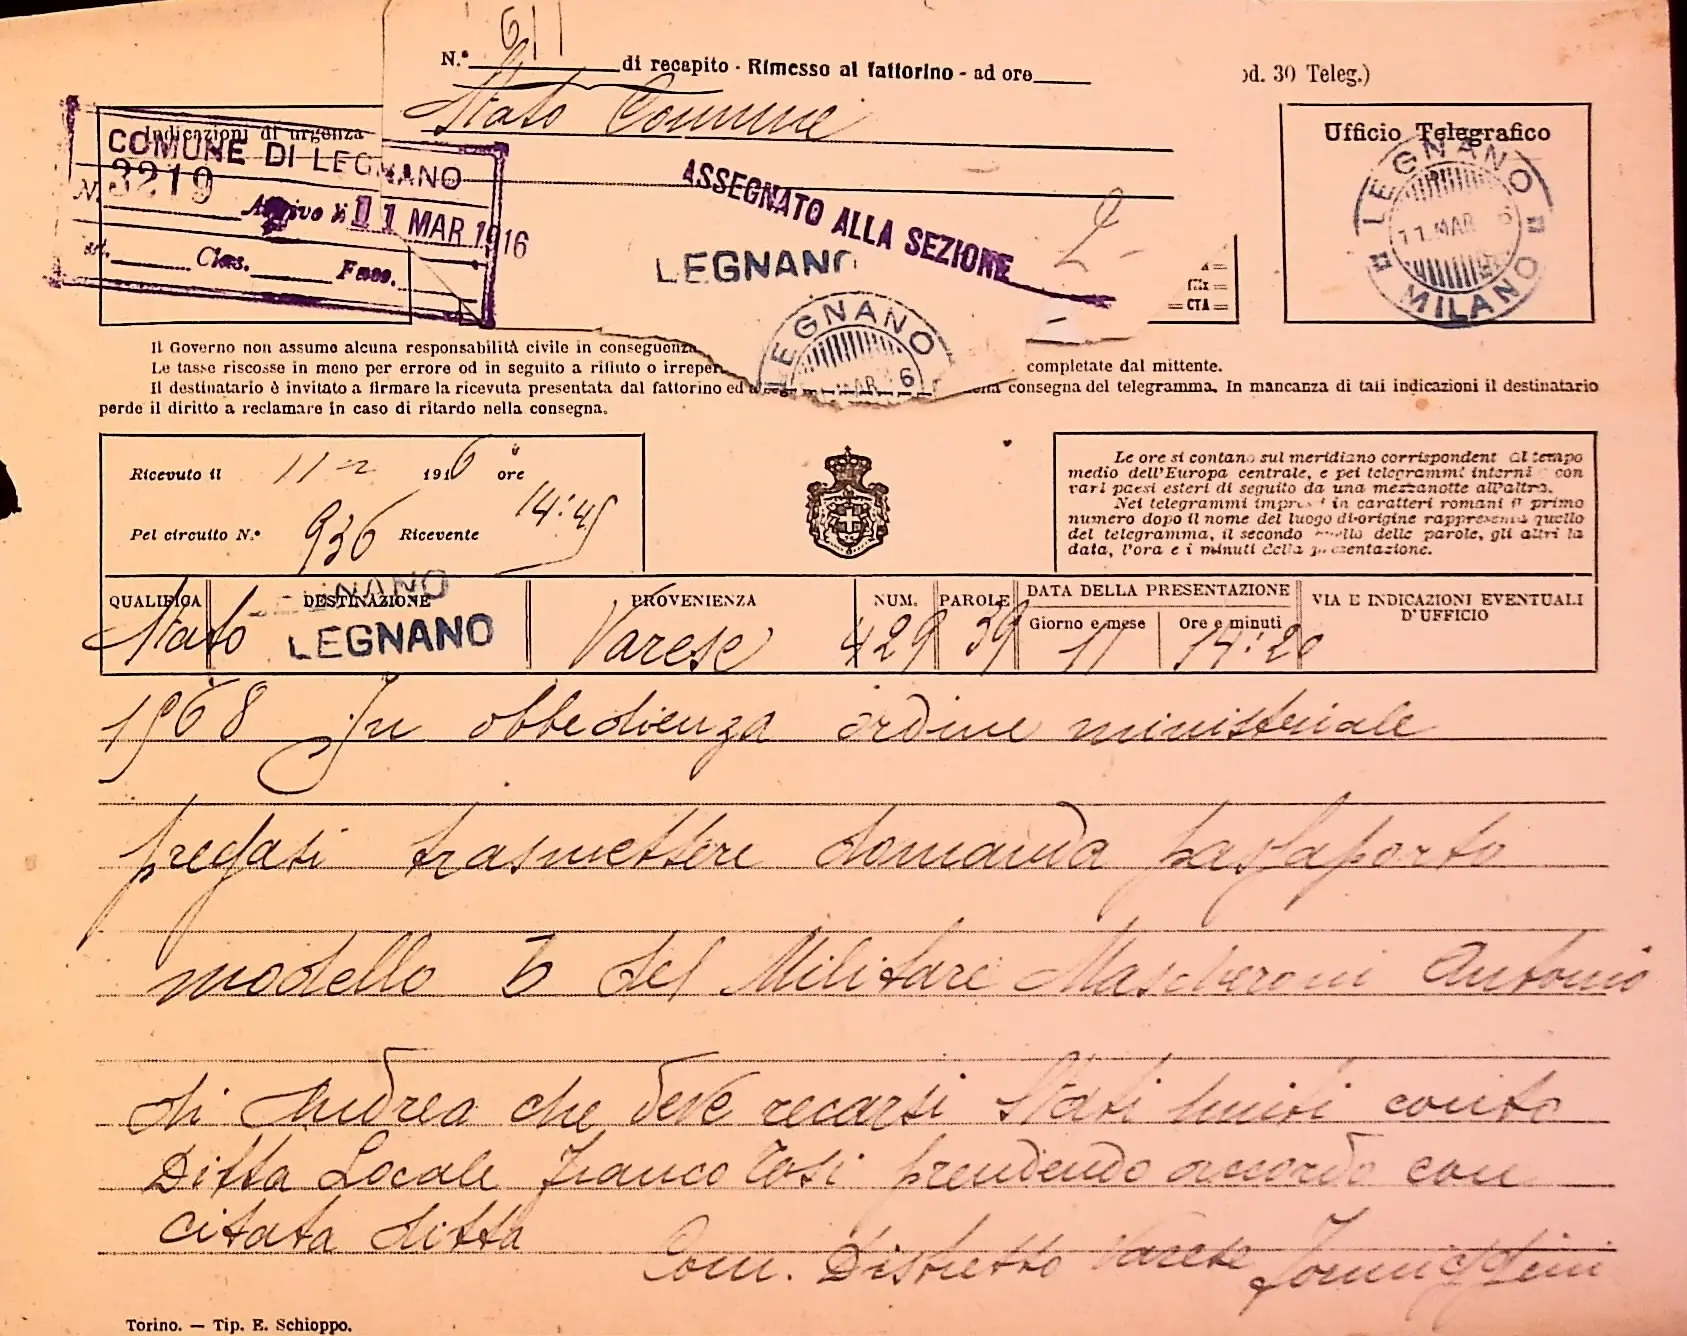 N.° 611 di recapito - Rimesso al fattorino - ad ore
od. 30 Teleg.)
Stato Comune
Indicazioni di urgenza
COMUNE DI LEGNANO
N. 3219
Arrivo li 11 MAR 1916
Clas. Fasc.
ASSEGNATO ALLA SEZIONE 2
LEGNANO
LEGNANO
MAR 6
Ufficio Telegrafico
LEGNANO
11.MAR 6
MILANO
CTA =
Il Governo non assume alcuna responsabilità civile in conseguenza
Le tasse riscosse in meno per errore od in seguito a rifiuto o irreper completate dal mittente.
Il destinatario è invitato a firmare la ricevuta presentata dal fattorino ed a consegna del telegramma. In mancanza di tali indicazioni il destinatario
perde il diritto a reclamare in caso di ritardo nella consegna.
Ricevuto il 11 1916 ore 14:45
Pel circuito N.° 936 Ricevente
Le ore si contano sul meridiano corrispondent al tempo
medio dell'Europa centrale, e pei telegrammi interni e con
vari paesi esteri di seguito da una mezzanotte all'altra.
Nei telegrammi impressi in caratteri romani il primo
numero dopo il nome del luogo di origine rappresenta quello
del telegramma, il secondo quello delle parole, gli altri la
data, l'ora e i minuti della presentazione.
QUALIFICA DESTINAZIONE PROVENIENZA NUM. PAROLE DATA DELLA PRESENTAZIONE VIA E INDICAZIONI EVENTUALI
D'UFFICIO
Giorno e mese Ore e minuti
LEGNANO
Stato LEGNANO Varese 429 39 11 14:20
1968 In obbedienza ordine ministeriale
pregasi trasmettere domanda passaporto
modello B del Militare Mascheroni Antonio
di Andrea che deve recarsi Stati Uniti conto
Ditta Locale Franco Tosi prendendo accordo con
citata ditta
Com. Distretto Varese
Torino. — Tip. E. Schioppo.